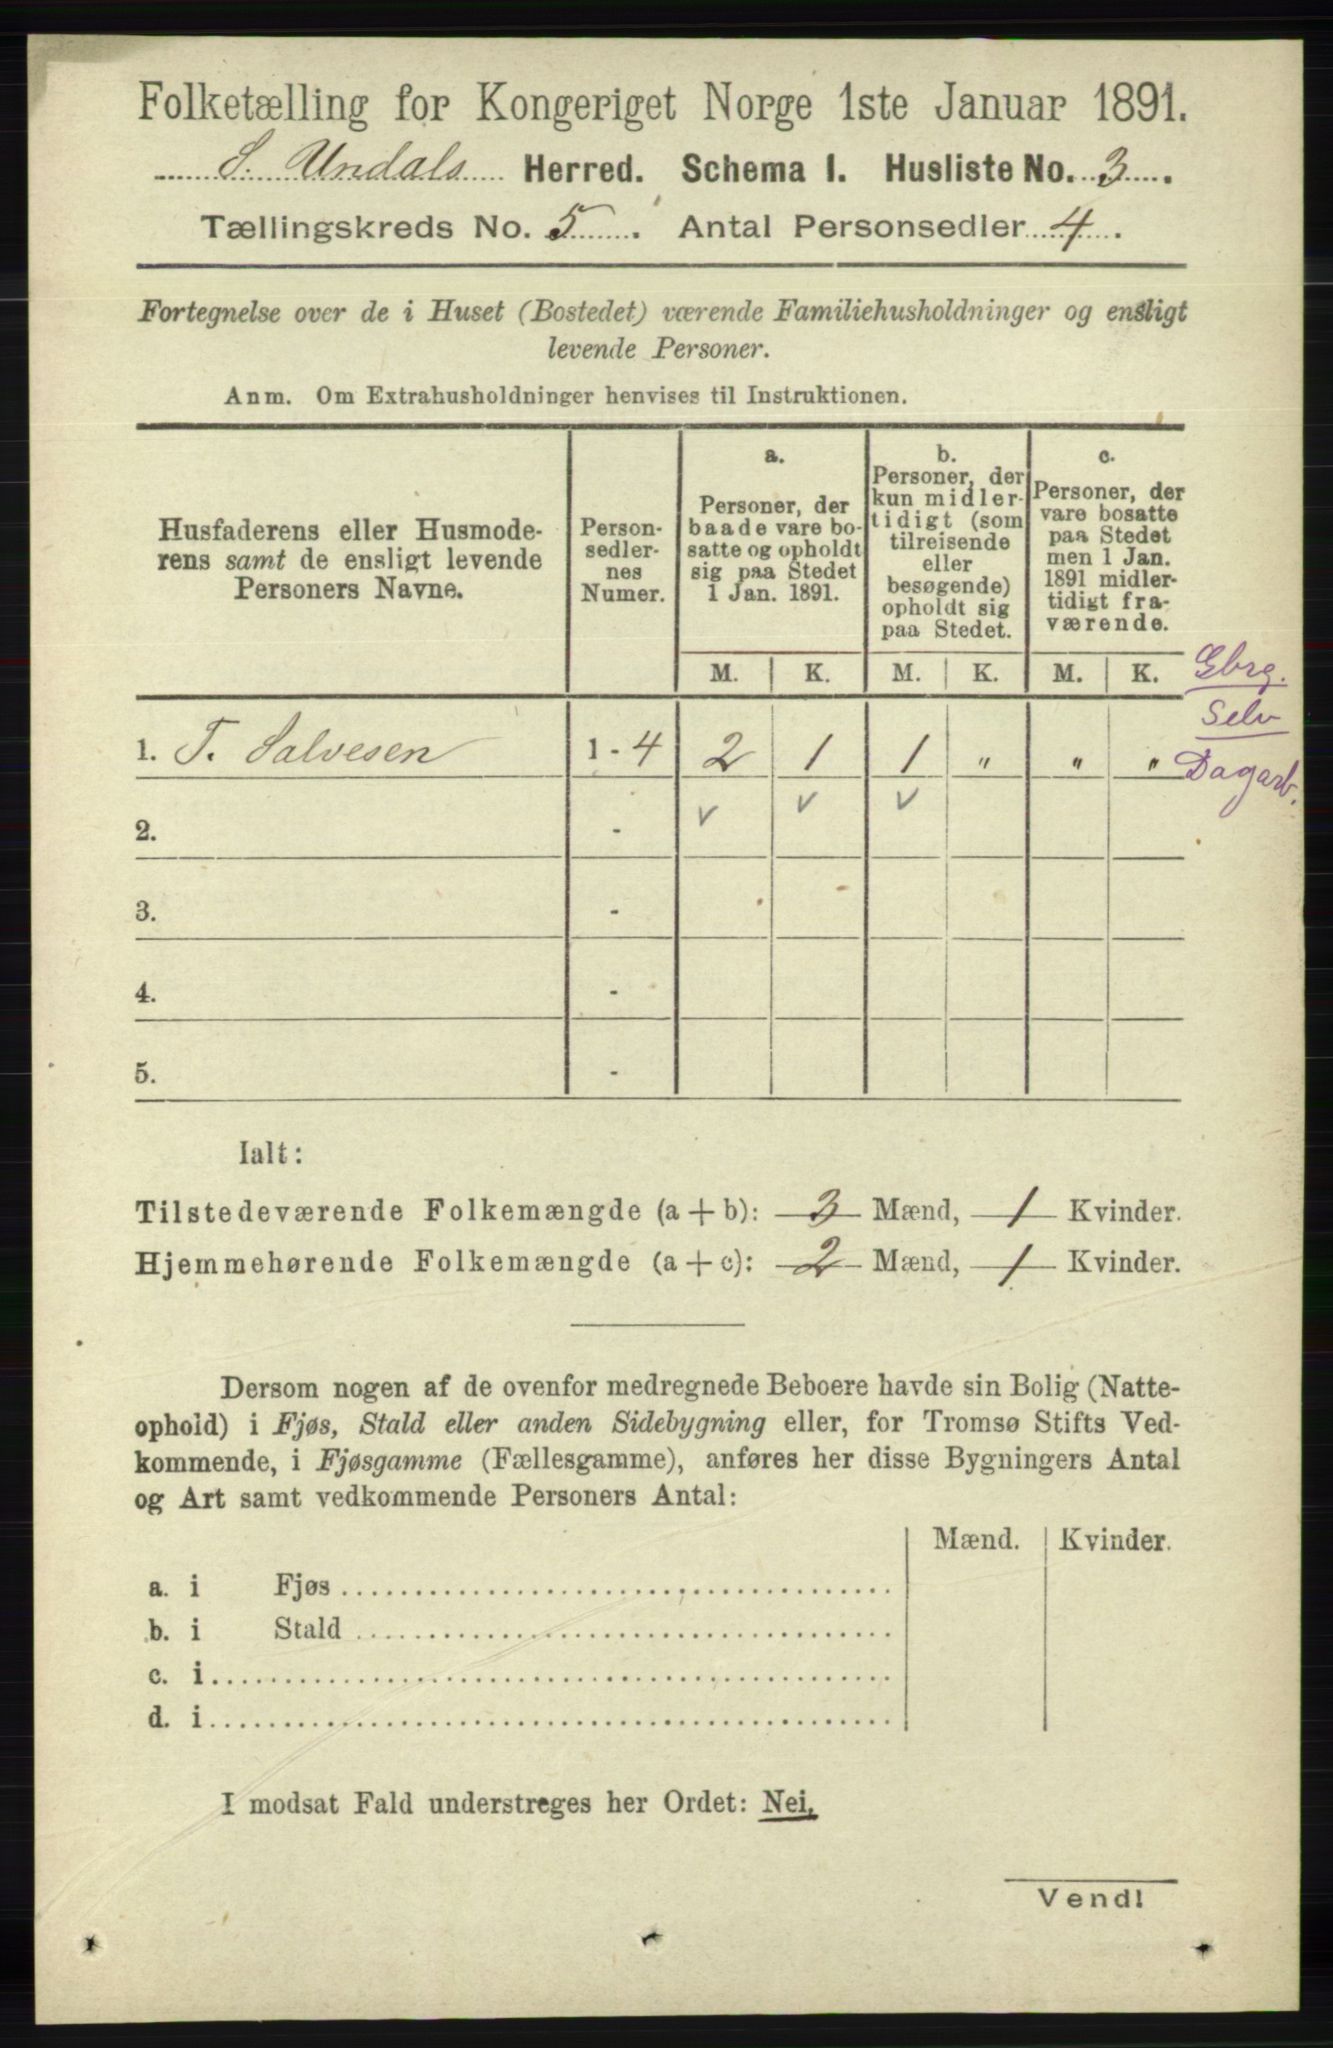 Folketælling for Kongeriget Norge 1ste Januar 1891.
S. Undals Herred. Schema I. Husliste No. 3.
Tællingskreds No. 5. Antal Personsedler 4.
Fortegnelse over de i Huset (Bostedet) værende Familiehusholdninger og ensligt
levende Personer.
Anm. Om Extrahusholdninger henvises til Instruktionen.
Husfaderens eller Husmode-
rens samt de ensligt levende
Personers Navne.
Person-
sedler-
nes
Numer.
a.
Personer, der
baade vare bo-
satte og opholdt
sig paa Stedet
1 Jan. 1891.
b.
Personer, der
kun midler-
tidigt (som
tilreisende
eller
besøgende)
opholdt sig
paa Stedet.
c.
Personer, der
vare bosatte
paa Stedet
men 1 Jan.
1891 midler-
tidigt fra-
værende.
M. K. M. K. M. K.
Gbrg.
Selv
Dagarb.
1. T. Salvesen 1 - 4 2 1 1 " " "
2. - v v v
3. -
4. -
5. -
Ialt:
Tilstedeværende Folkemængde (a + b): 3 Mænd, 1 Kvinder.
Hjemmehørende Folkemængde (a + c): 2 Mænd, 1 Kvinder.
Dersom nogen af de ovenfor medregnede Beboere havde sin Bolig (Natte-
ophold) i Fjøs, Stald eller anden Sidebygning eller, for Tromsø Stifts Ved-
kommende, i Fjøsgamme (Fællesgamme), anføres her disse Bygningers Antal
og Art samt vedkommende Personers Antal:
Mænd. Kvinder.
a. i Fjøs
b. i Stald
c. i
d. i
I modsat Fald understreges her Ordet: Nei.
Vend!